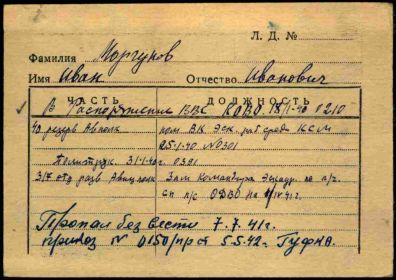 Л. Д. №
Фамилия Моргунов
Имя Иван Отчество Иванович
ЧАСТЬ ДОЛЖНОСТЬ
В распоряжении ВВС КОВО 18/I-40 0210
40 резерв Авполк пом. ВК Эск. раб среди КСМ
25-1-40 №0301
Политрук. 31/1-40г. 0391
317 отд разв Авиаполк Зам Командира Эскадр. по п/ч.
сп п/с ОДВО на 1/IV 41 г.
Пропал без вести 7.7.41г.
приказ № 0150/пр от 5.5.42. ГУФКА.